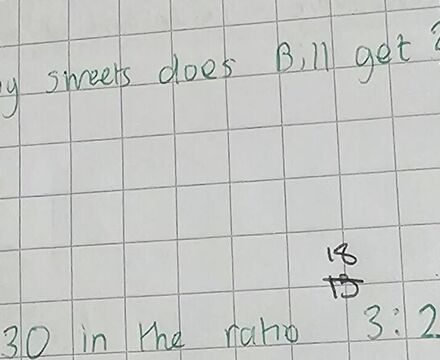 y sweets does Bill get ?
18
15
30 in the ratio 3:2